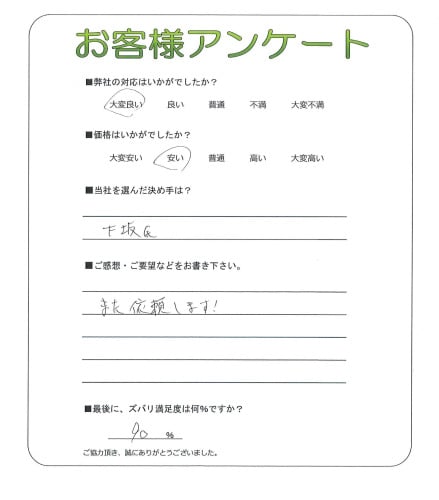 お客様アンケート
■弊社の対応はいかがでしたか？
大変良い 良い 普通 不満 大変不満
■価格はいかがでしたか？
大変安い 安い 普通 高い 大変高い
■当社を選んだ決め手は？
下坂氏
■ご感想・ご要望などをお書き下さい。
また依頼します!
■最後に、ズバリ満足度は何%ですか？
90 %
ご協力頂き、誠にありがとうございました。